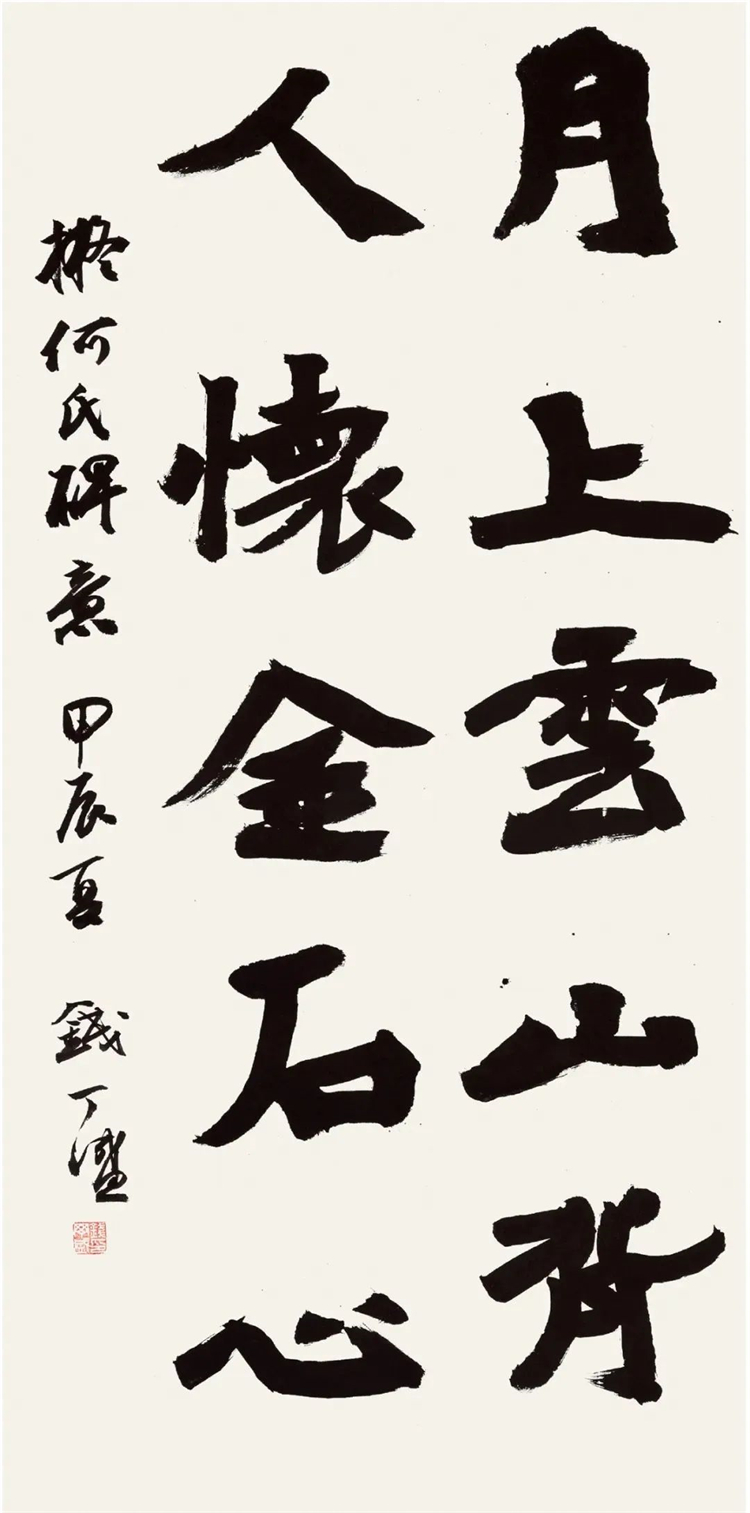 月上雲山背
人懷金石心
擬何氏碑意 甲辰夏 錢丁盛